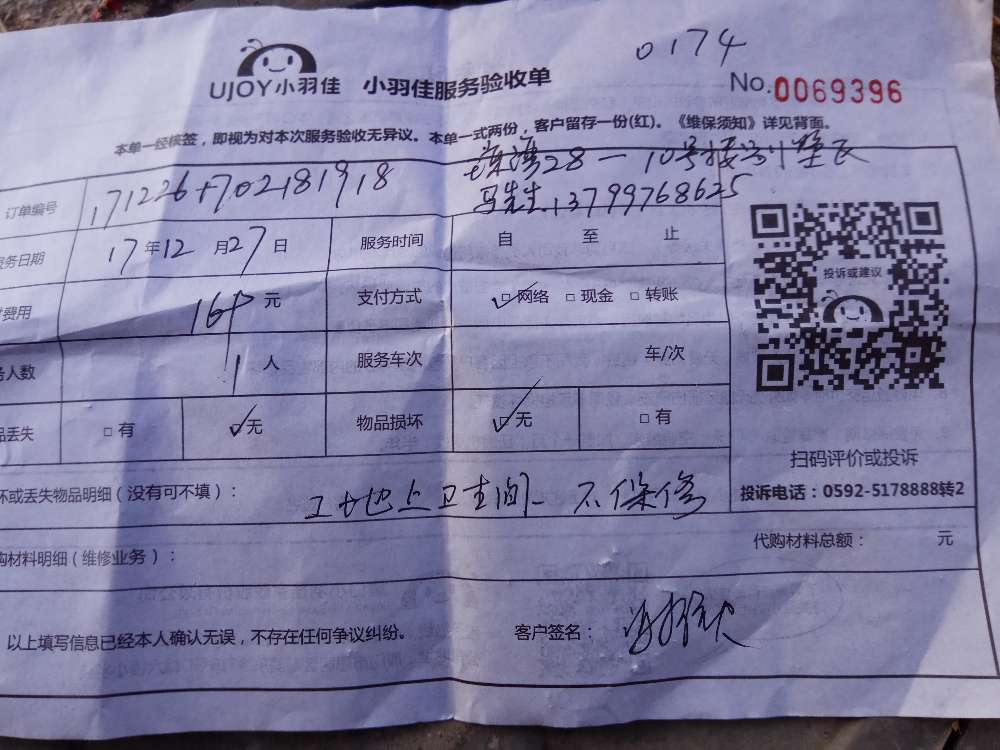 0174
UJOY小羽佳 小羽佳服务验收单 No.0069396
本单一经核签，即视为对本次服务验收无异议。本单一式两份，客户留存一份(红)。《维保须知》详见背面。
28－10号楼
订单编号 171226+702181918 马先生.13799768625
务日期 17年12月27日 服务时间 自 至 止
费用 元 支付方式 ☑网络 □现金 □转账
务人数 1人 服务车次 车/次
品丢失 □有 ☑无 物品损坏 ☑无 □有
投诉或建议
扫码评价或投诉
投诉电话：0592-5178888转2
坏或丢失物品明细（没有可不填）： 工地上卫生间－不保修
购材料明细（维修业务）： 代购材料总额： 元
以上填写信息已经本人确认无误，不存在任何争议纠纷。 客户签名：